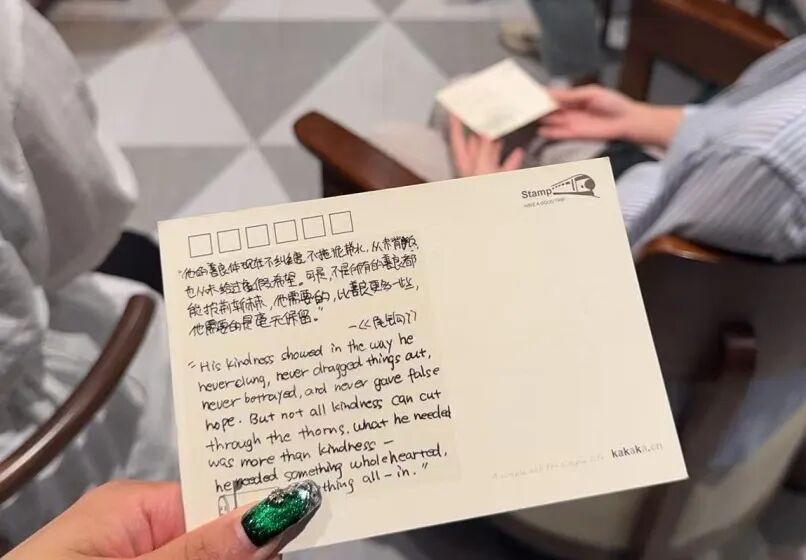 Stamp
HAVE A GOOD TRIP
"他的善良体现在不纠缠,不拖泥带水,从未背叛,
也从未给过虚假希望。可是,不是所有的善良都
能披荆斩棘,他需要的,比善良更多一些,
他需要的是毫无保留。"
—《
》
"His kindness showed in the way he
never clung, never dragged things out,
never betrayed, and never gave false
hope. But not all kindness can cut
through the thorns. What he needed
was more than kindness —
he needed something wholehearted,
thing all-in."
kakaka.cn